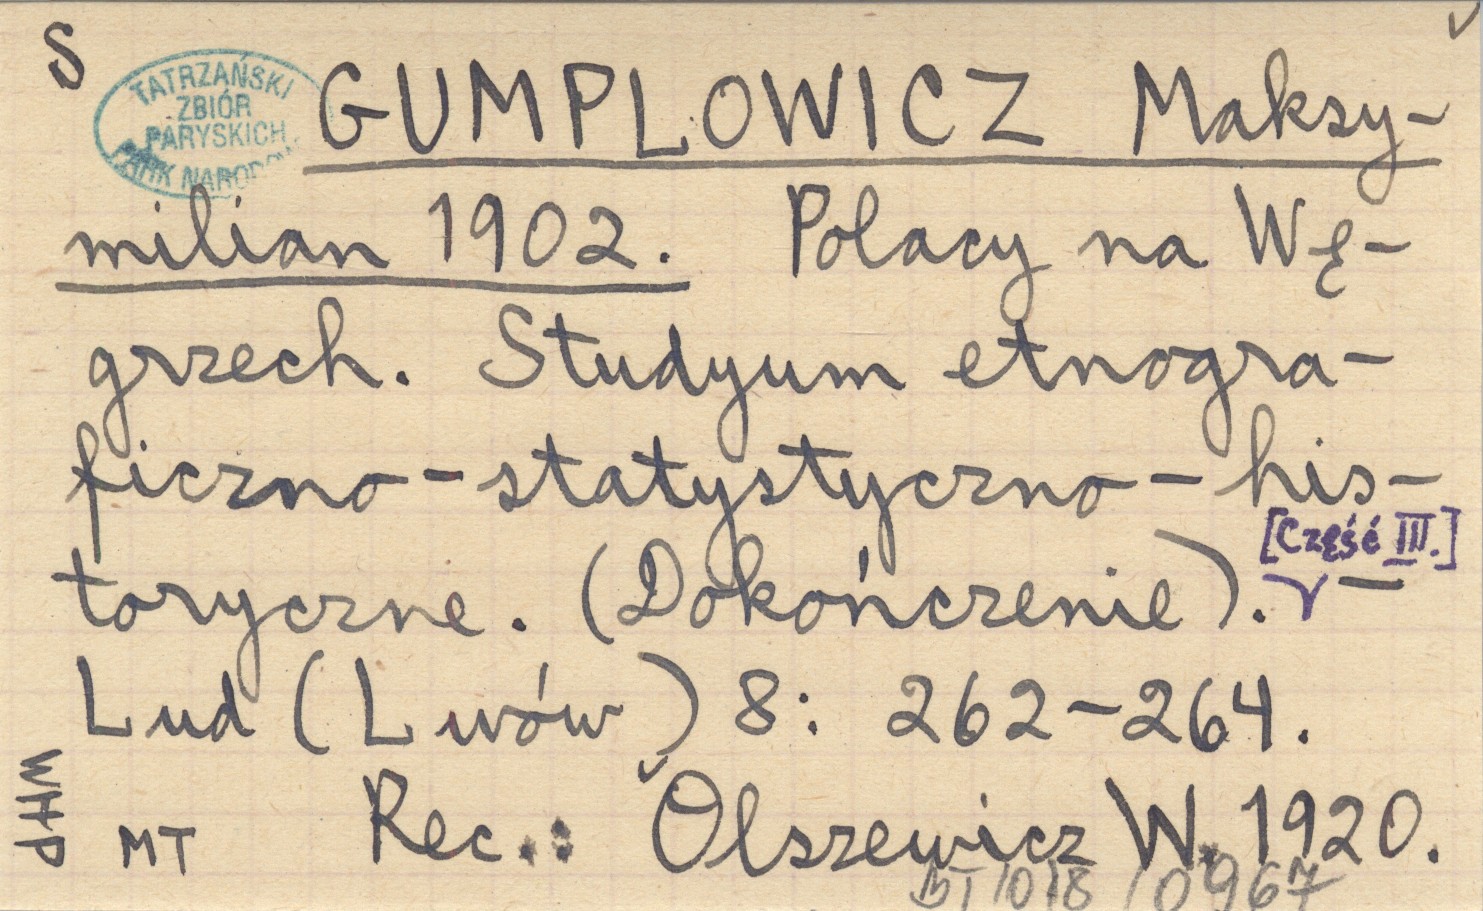 S
TATRZAŃSKI
ZBIÓR
PARYSKICH
PARK NAROD
GUMPLOWICZ Maksy-
milian 1902. Polacy na Wę-
grzech. Studyum etnogra-
ficzno-statystyczno-his-
[Część III.]
toryczne. (Dokończenie). -
Lud (Lwów) 8: 262-264.
WHP
MT Rec.: Olszewicz W. 1920.
BT/018/0967